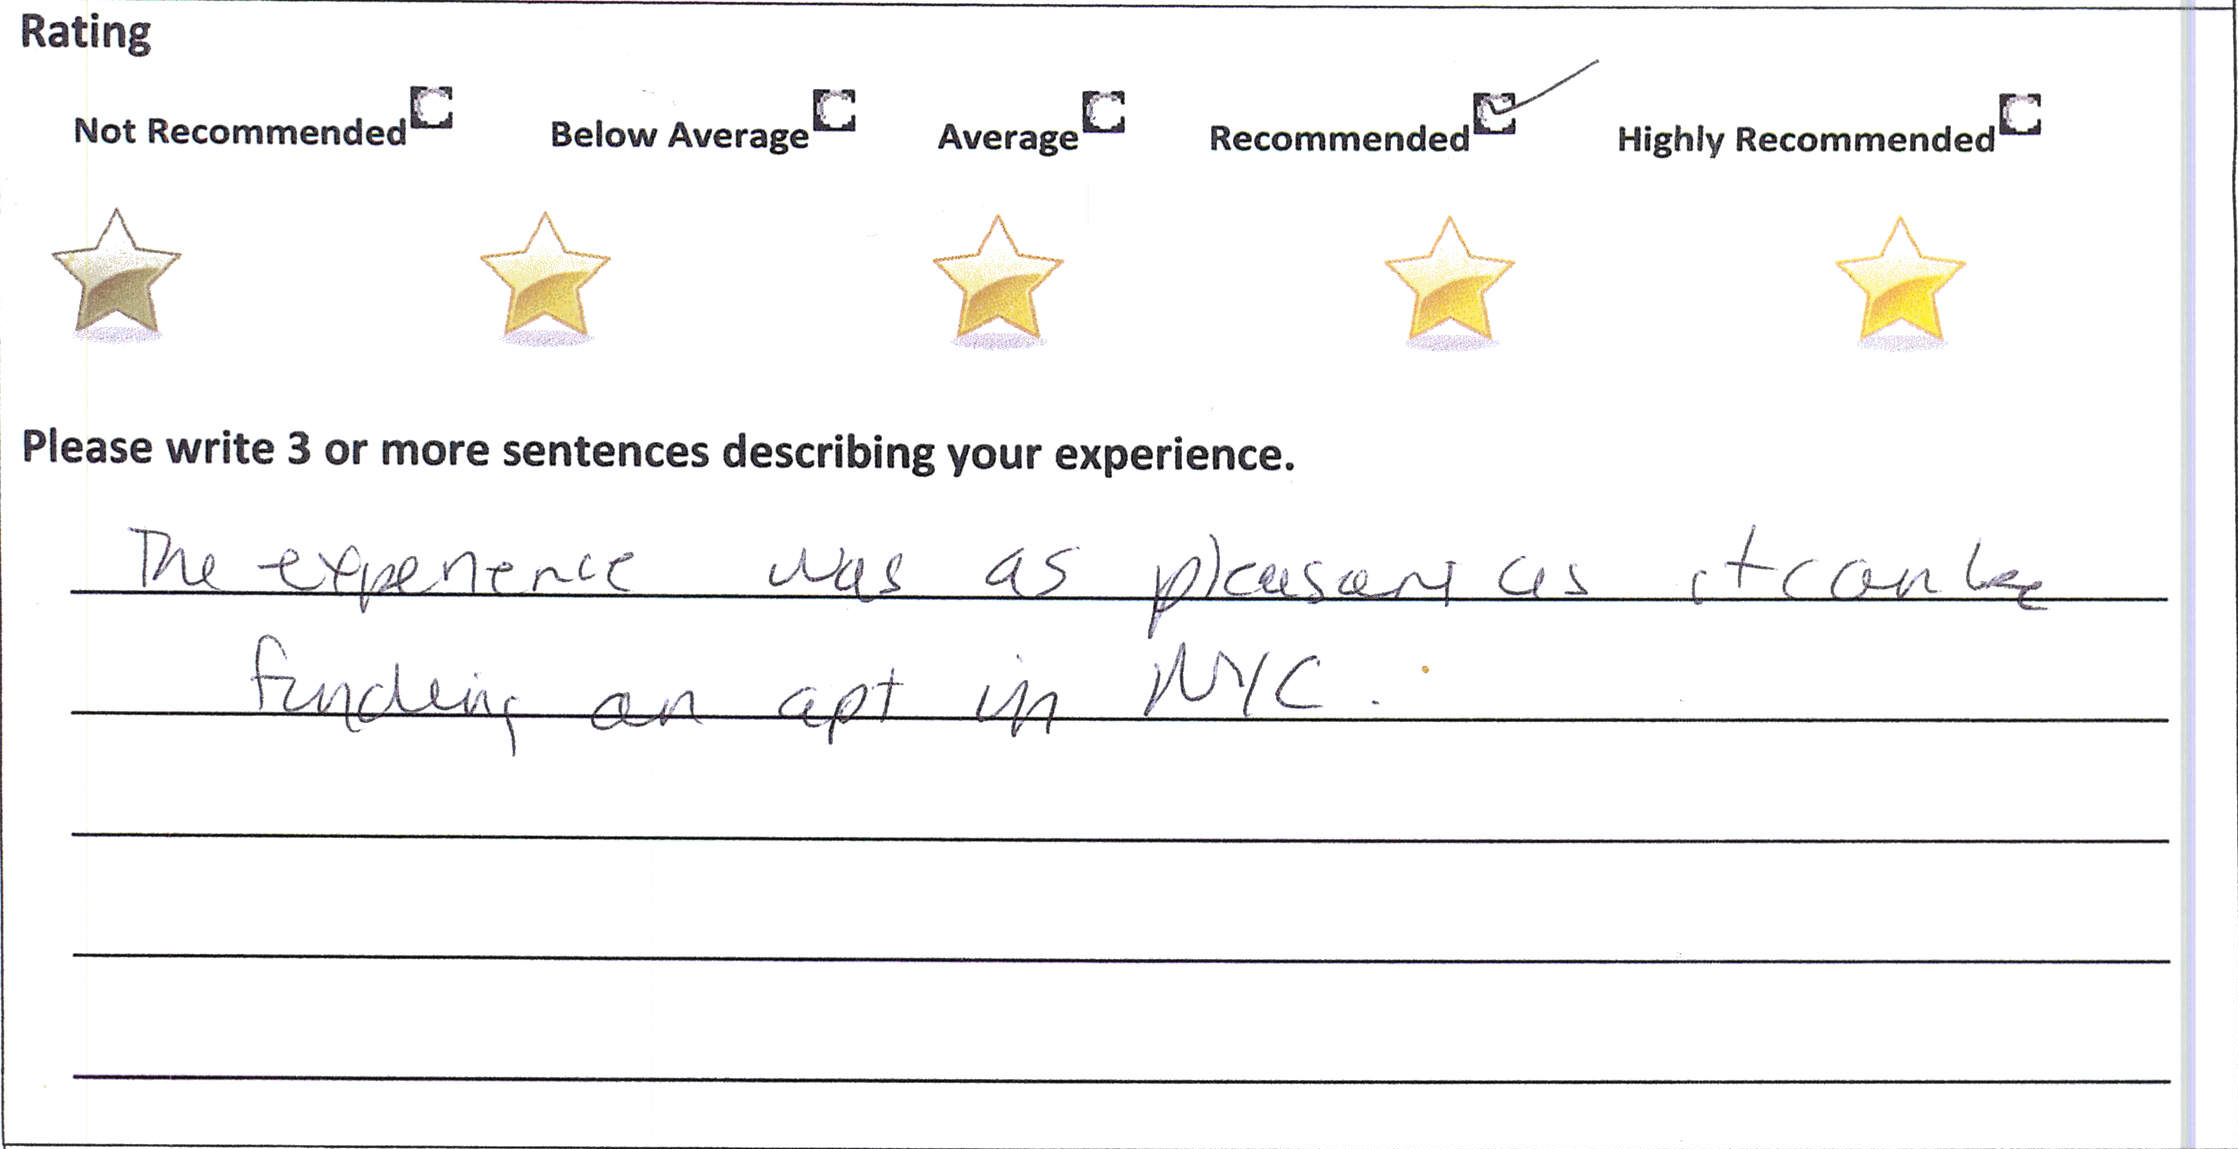 Rating
Not Recommended Below Average Average Recommended Highly Recommended
Please write 3 or more sentences describing your experience.
The experience was as pleasant as it can be
finding an apt in NYC.